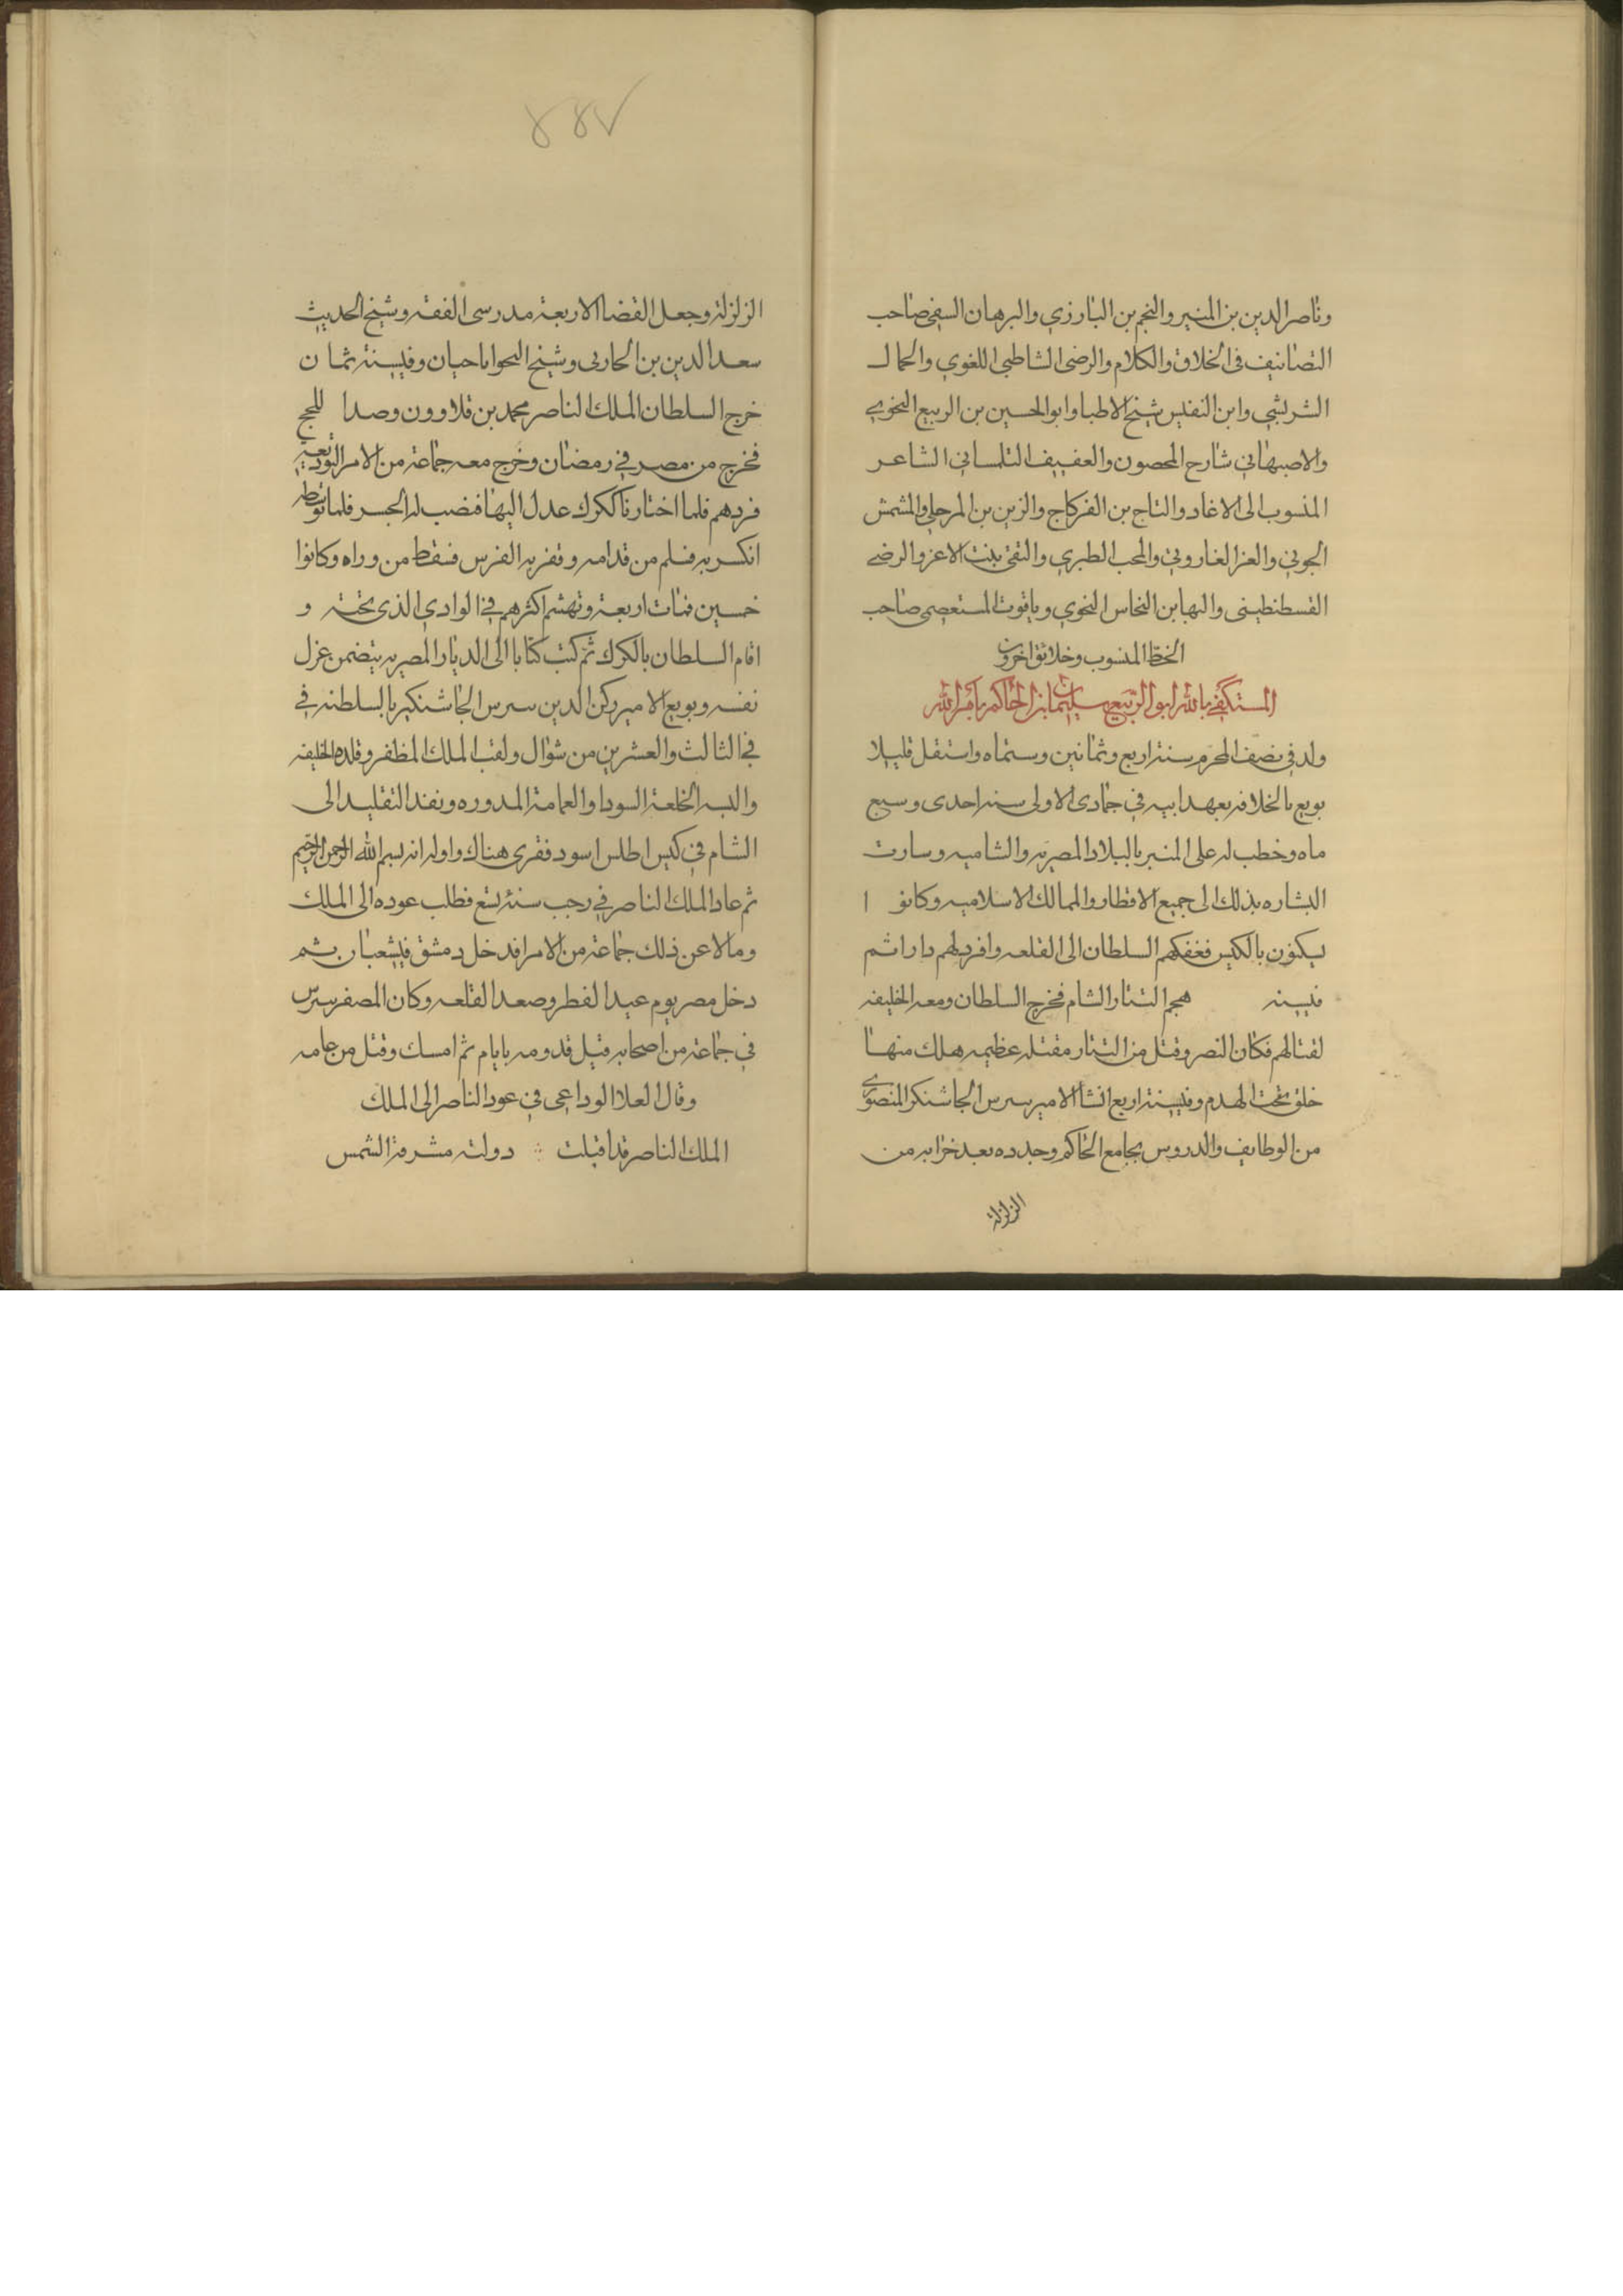 وناصر الدين بن المنير والنجم بن البارزي والبرهان النسفي صاحب
التصانيف في الخلاف والكلام والرضى الشاطبي اللغوي والجمال
الشريشي وابن النفيس شيخ الاطبا وابو الحسين بن الربيع النحوي
والاصبهاني شارح المحصون والعفيف التلمساني الشاعر
المنسوب الى الاغاد والتاج بن الفركاح والزين بن المرحلي والشمس
الجوني والعز الغاروني والمحب الطبري والتقى بنت الاعز والرضى
القسطنطيني والبها بن النحاس النحوي وياقوت المستعصمي صاحب
الخط المنسوب وخلائق اخرون
المستكفي بالله ابو الربيع سليمان ابن الحاكم بامر الله
ولد في نصف المحرم سنة اربع وثمانين وستماه واستقل قليلا
بويع بالخلافه بعهد ابيه في جمادى الاولى سنه احدى وسبع
ماه وخطب له على المنبر بالبلاد المصريه والشاميه وسارت
البشاره بذلك الى جميع الاقطار والممالك الاسلاميه وكانوا
يسكنون بالكبس فنقلهم السلطان الى القلعه وافرد لهم دارا ثم
في سنه هجم التتار الشام فخرج السلطان ومعه الخليفه
لقتالهم فكان النصر وقتل من التتار مقتله عظيمه هلك منها
خلق تحت الهدم وفي سنة اربع انشا الامير بيبرس الجاشنكر المنصوري
من الوظايف والدروس بجامع الحاكم وجدده بعد خرابه من
الزلزلة
٤٤٧
الزلزلة وجعل القضا الاربعة مدرسى الفقه وشيخ الحديث
سعد الدين بن الحاربى وشيخ النحو اباحيان وفي سنة ثمان
خرج السلطان الملك الناصر محمد بن قلاوون وصدا للحج
فخرج من مصر في رمضان وخرج معه جماعة من الامرا لتوديعه
فردهم فلما اختار نا لكرك عدل اليها فنصب له الجسر فلما توسطه
انكسر به فسلم من قدامه وقفز به الفرس فسقط من وراه وكانوا
خمسين فمات اربعة وتهشم اكثرهم في الوادي الذى تحته و
اقام السلطان بالكرك ثم كتب كتابا الى الديار المصريه يتضمن عزل
نفسه وبويع الامير ركن الدين بيبرس الجاشنكير بالسلطنه في
في الثالث والعشرين من شوال ولقب الملك المظفر وقلده الخليفه
والبسه الخلعة السودا والعمامة المدوره ونفذ التقليد الى
الشام في كيس اطلس اسود فقرى هناك واوله انه بسم الله الرحمن الرحيم
ثم عاد الملك الناصر في رجب سنة تسع فطلب عوده الى الملك
ومالا عن ذلك جماعة من الامرا فدخل دمشق في شعبان ثم
دخل مصر يوم عيد الفطر وصعد القلعه وكان المصفر بيبرس
في جماعة من اصحابه قبل قدومه بايام ثم امسك وقتل من عامه
وقال العلا الوداعى في عود الناصر الى الملك
الملك الناصر قد اقبلت ∴ دولته مشرقة الشمس